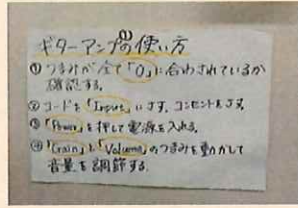 ギターアンプの使い方
① つまみが全て「0」に合わされているか
確認する。
② コードを「Input」にさす。コンセントをさす。
③「Power」を押して電源を入れる。
④「Gain」と「Volume」のつまみを動かして
音量を調節する。